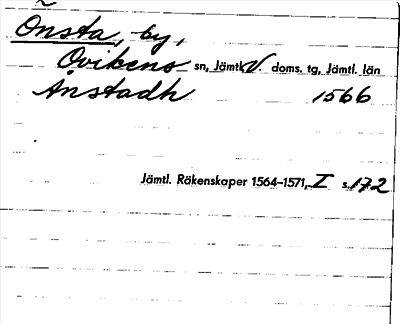 Önsta, by,
Ovikens sn, Jämtl. V doms. tg, Jämtl. län
Ånstadh 1566
Jämtl. Räkenskaper 1564–1571, I s. 172